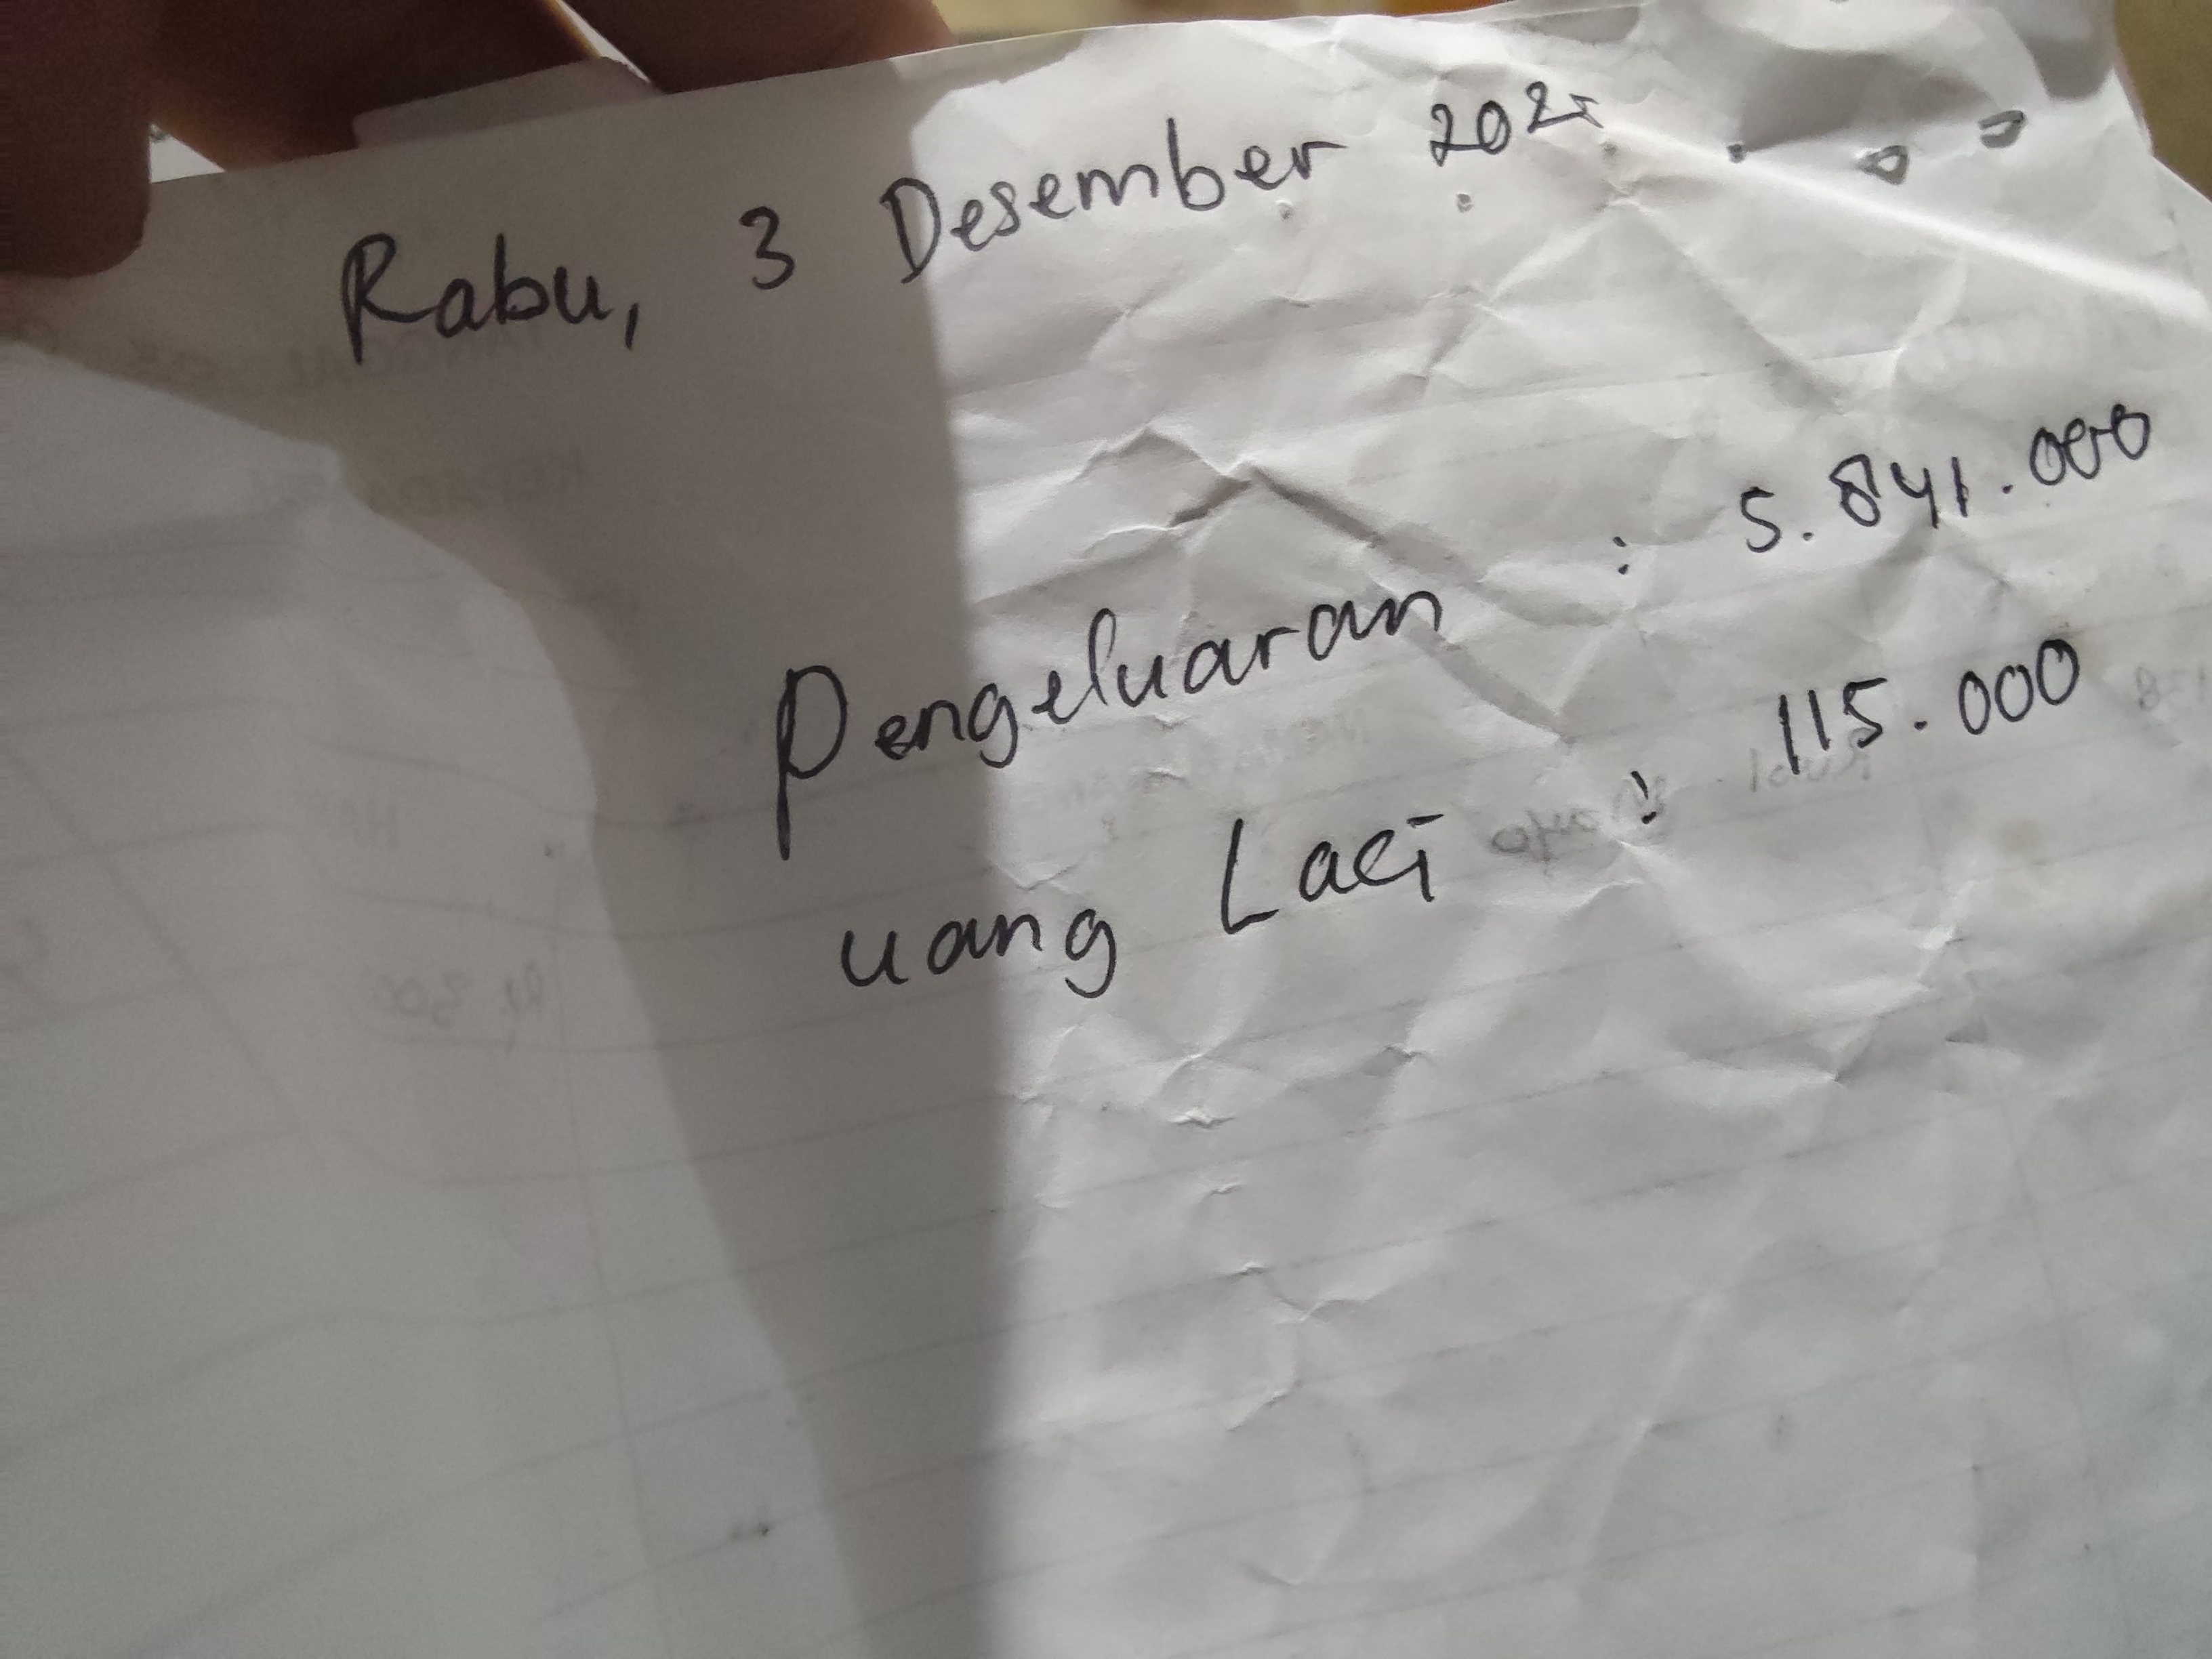 Rabu, 3 Desember 2025
Pengeluaran : 5.841.000
uang Laci : 115.000